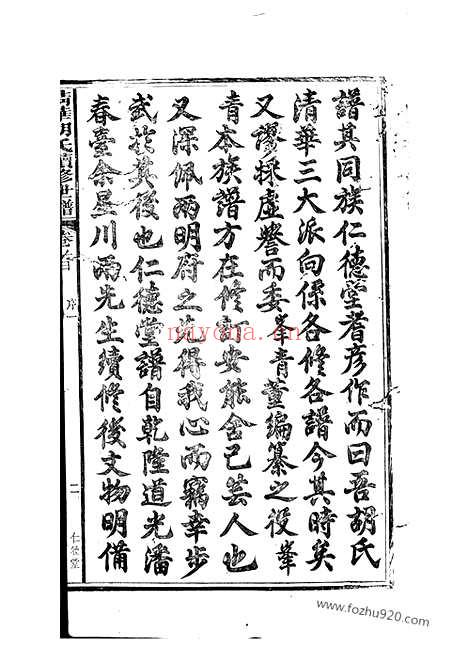 譜其同族仁德堂耆彦作而曰吾胡氏
清華三大派向係各修各譜今其時矣
又謬採虛譽而委峯青董編纂之役峯
青本族譜方在修訂安能舍己芸人也
又深佩兩明府之先得我心而竊幸步
武於其後也仁德堂譜自乾隆道光潘
春臺余星川兩先生續修後文物明備
清華胡氏續修世譜 卷之首 序一 二 仁德堂
ndyona.com
www.fozhu920.com